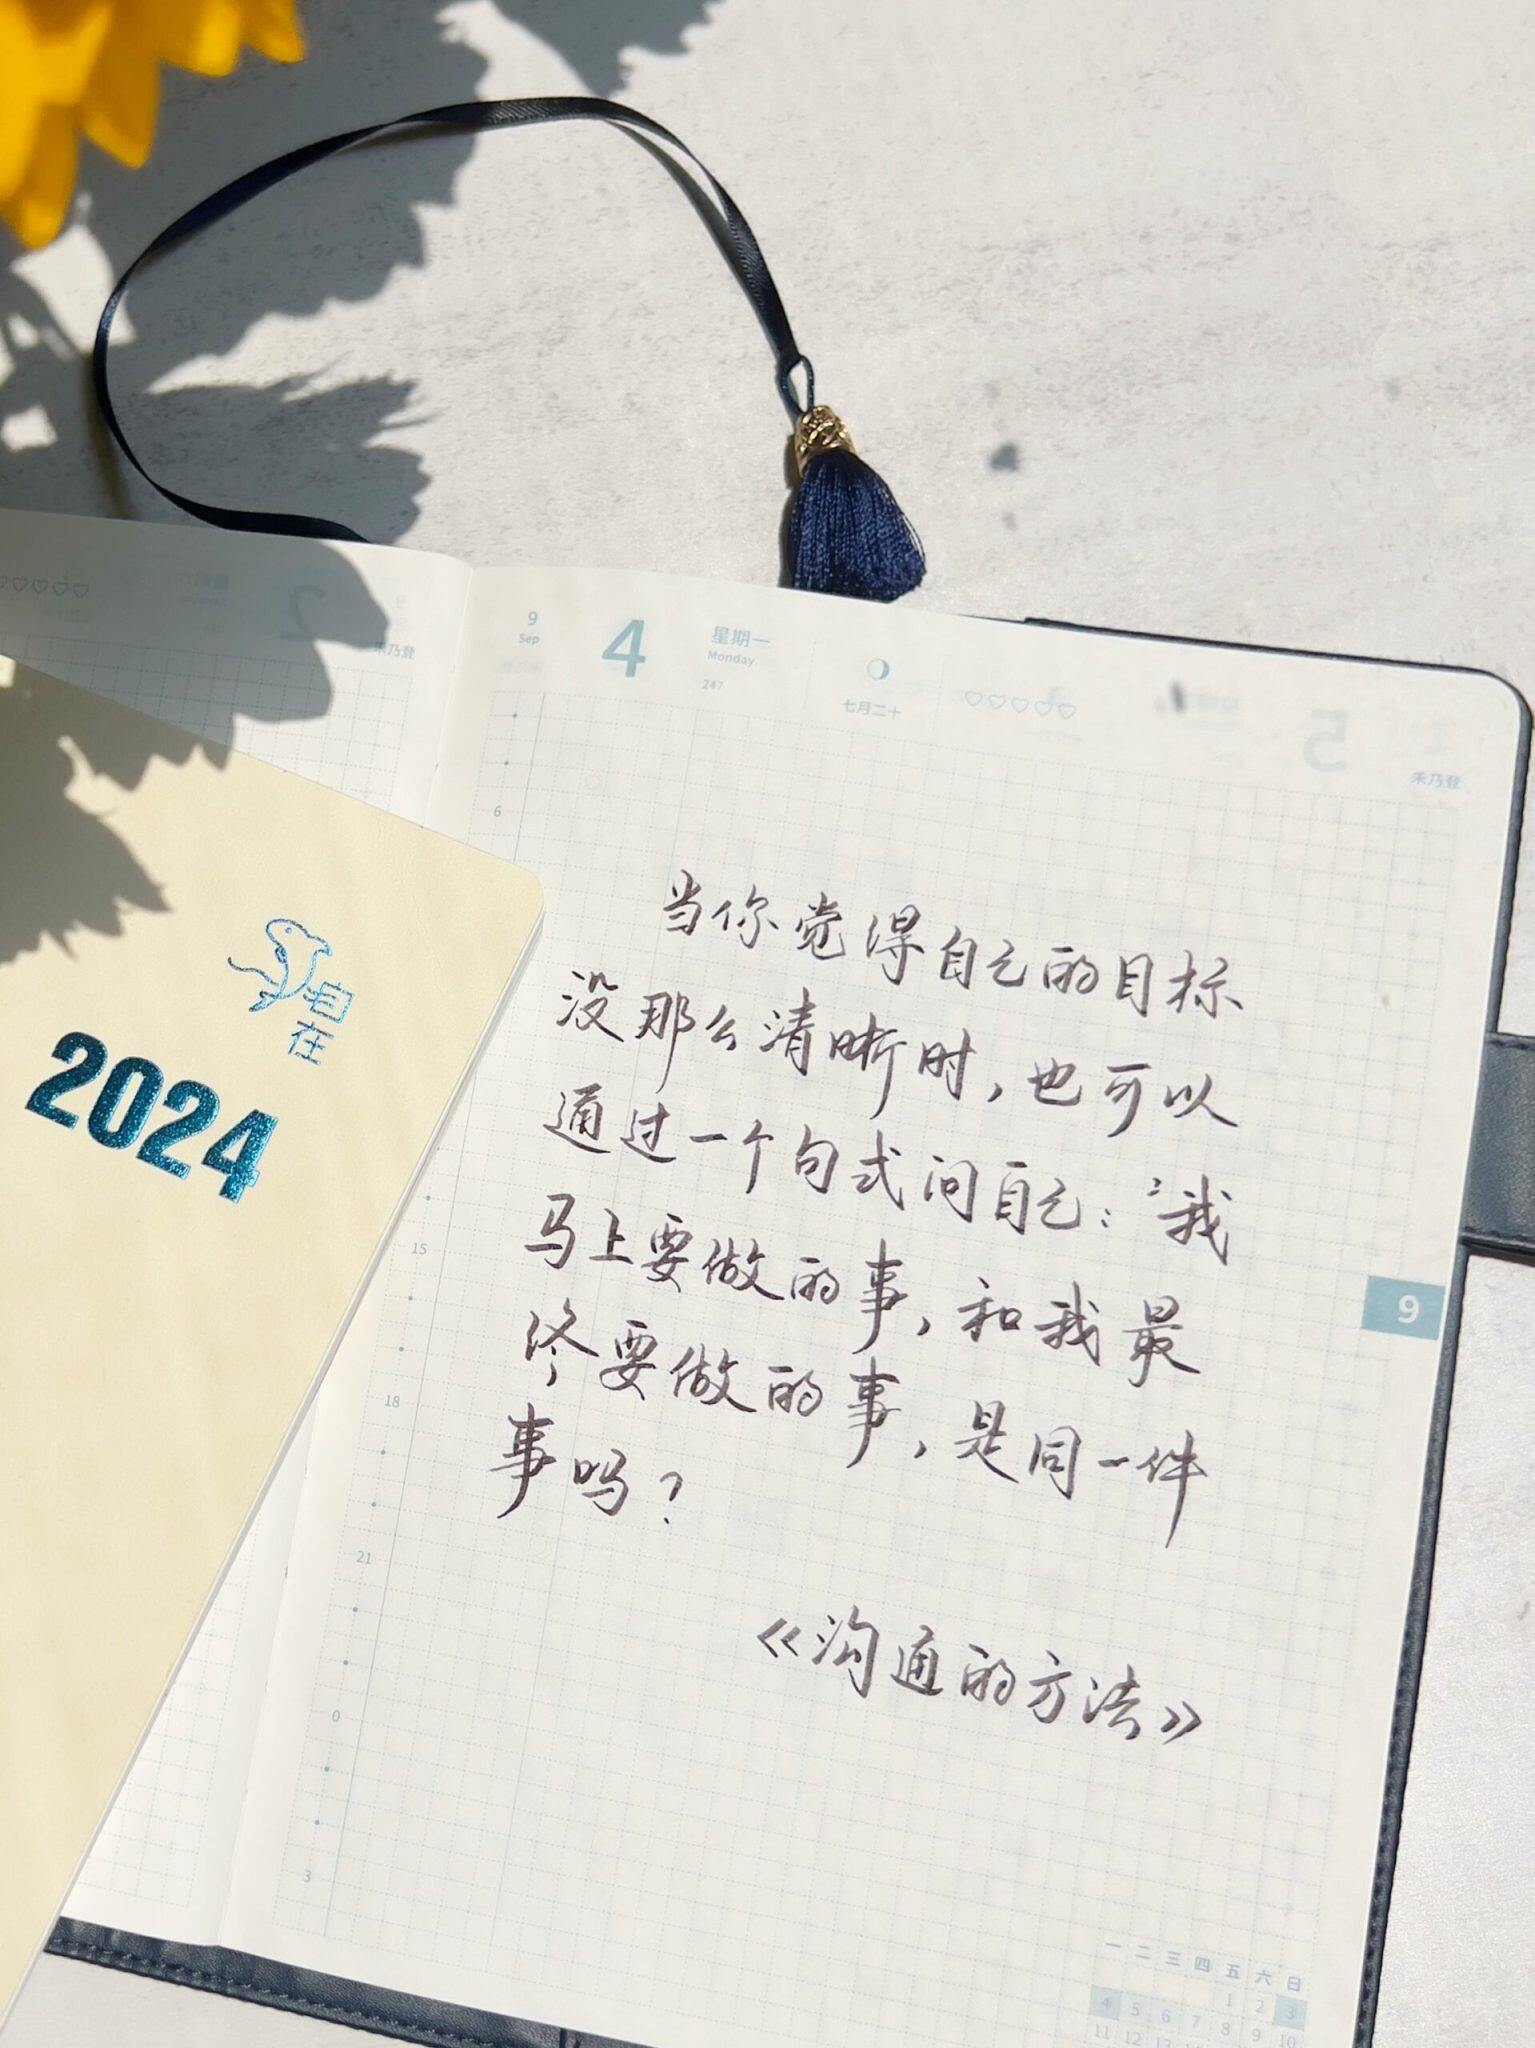 9
Sep
4
星期一
Monday
247
七月二十
禾乃登
禾乃登
6
当你觉得自己的目标
没那么清晰时，也可以
通过一个句式问自己：“我
马上要做的事，和我最
终要做的事，是同一件
事吗？
《沟通的方法》
自在
2024
15
18
21
0
3
9
一 二 三 四 五 六 日
1 2 3
4 5 6 7 8 9 10
11 12 13